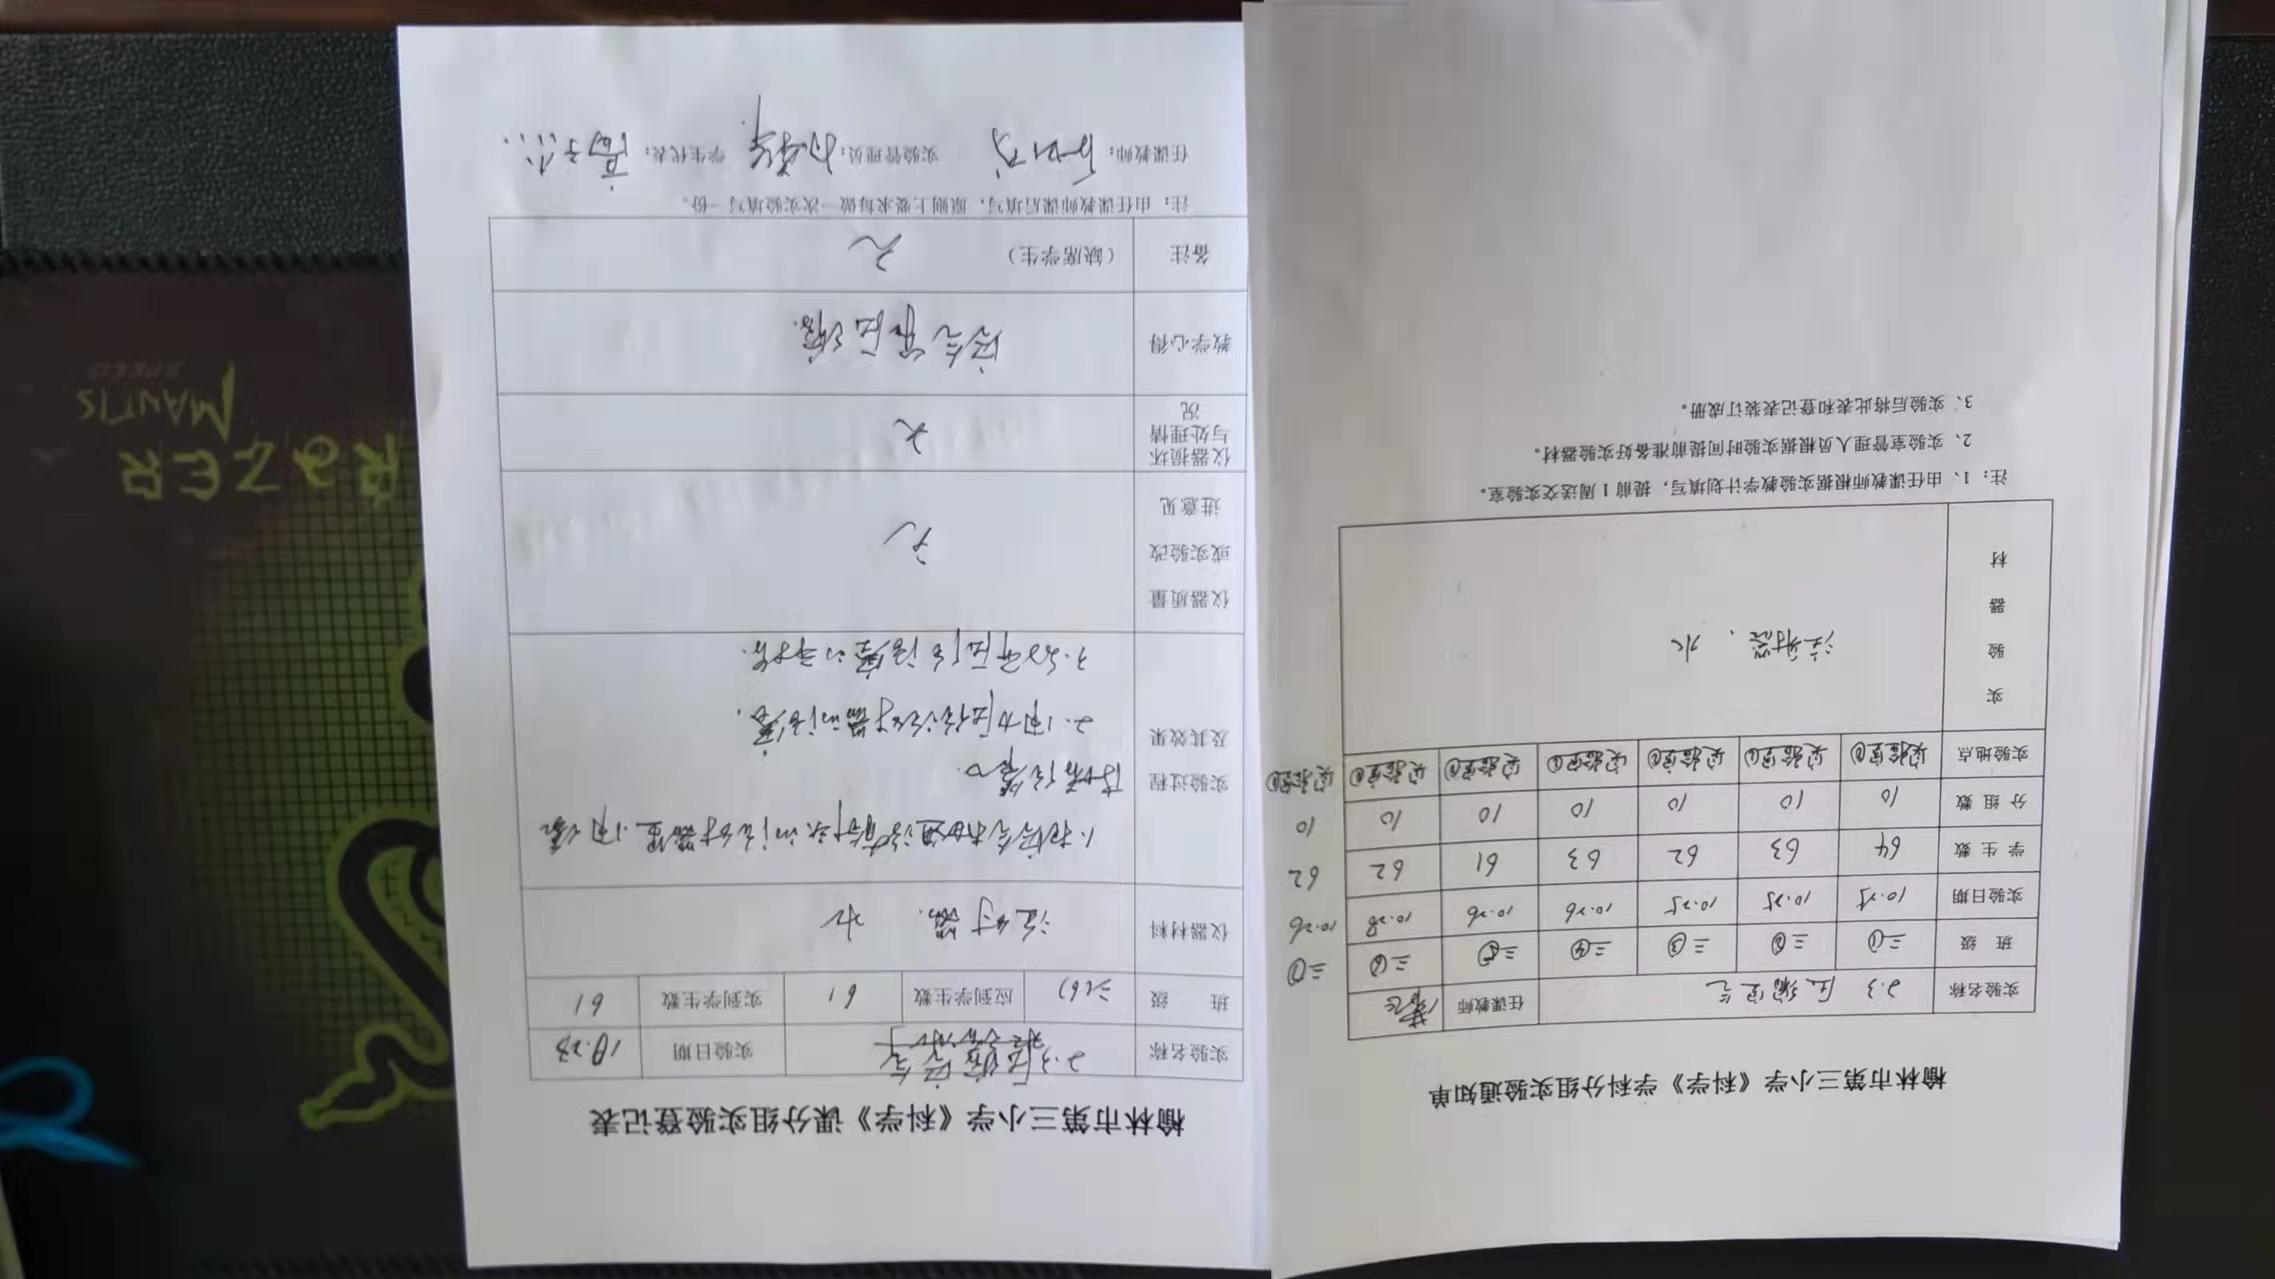 榆林市第三小学《科学》学科分组实验通知单
实验名称 2.3 压缩空气 任课教师
班 级 三① 三② 三③ 三④ 三⑤ 三⑥ 三⑦
实验日期 10.25 10.25 10.25 10.26 10.26 10.28 10.26
学 生 数 64 63 62 63 61 62 62
分 组 数 10 10 10 10 10 10 10
实验地点 实验室① 实验室① 实验室① 实验室① 实验室① 实验室① 实验室①
实验器材 注射器、水
注：1、由任课教师根据实验教学计划填写，提前1周送交实验室。
2、实验室管理人员根据实验时间提前准备好实验器材。
3、实验后将此表和登记表装订成册。
榆林市第三小学《科学》课分组实验登记表
实验名称 2.3压缩空气 实验日期 10.23
班 级 三(6) 应到学生数 61 实到学生数 61
仪器材料 注射器. 水
实验过程及其效果
2.用力压住注射器的活塞.
仪器质量或实验改进意见 无
仪器损坏与处理情况 无
教学心得 空气可压缩.
备注 （缺席学生） 无
注：由任课教师课后填写，原则上要求每做一次实验填写一份。
任课教师： 实验管理员： 学生代表：
RAZER
MANTIS
SPEED